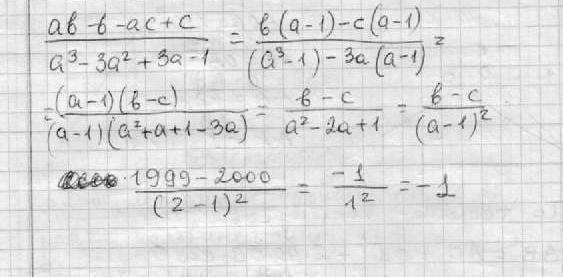 (ab - b - ac + c)/(a³ - 3a² + 3a - 1) = (b(a-1) - c(a-1))/((a³-1) - 3a(a-1)) =
= ((a-1)(b-c))/((a-1)(a²+a+1-3a)) = (b-c)/(a²-2a+1) = (b-c)/(a-1)²
(1999-2000)/(2-1)² = -1/1² = -1